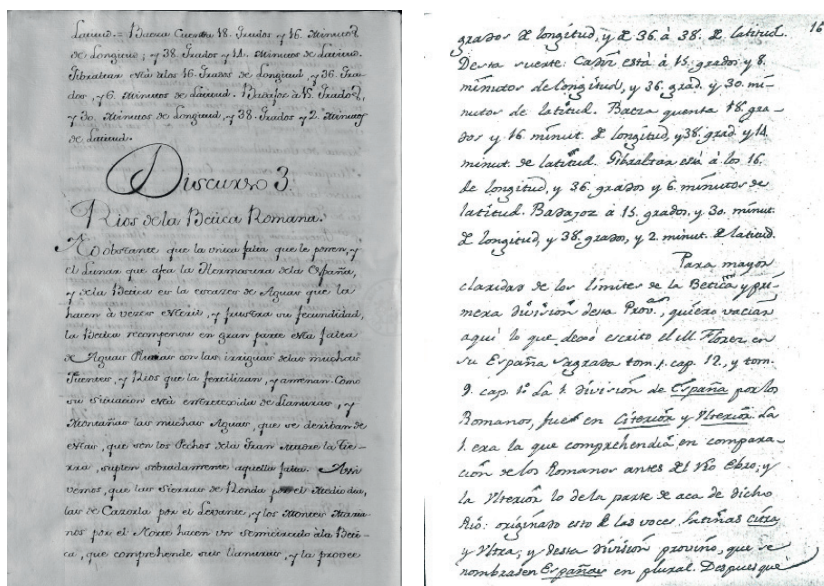 Latitud. = Baeza Cuenta 18. Grados y 16. Minutos
de Longitud; y 38. Grados y 14. Minutos de Latitud.
Gibraltar está a los 16. Grados de Longitud, y 36. Gra-
dos, y 6. Minutos de Latitud. Badajoz a 15. Grados,
y 30. Minutos de Longitud, y 38. Grados y 2. Minutos
de Latitud.
Discurso 3.
Rios de la Betica Romana.
No obstante que la unica falta que le ponen, y
el Lunar que afea la Hermosura de la España,
y de la Betica es la escasez de Aguas que la
hacen à veces esteril, y frustra su fecundidad,
la Betica recompensa en gran parte esta falta
de Aguas Pluvias con las de las muchas
Fuentes, y Rios que la fertilizan, y amenan. Como
su situacion está entretexida de Llanuras, y
Montañas las muchas Aguas, que se deriban de
estas, que son los Pechos de la Gran Madre la Tie-
rra, suplen sobradamente aquella falta. Assi
vemos, que las Sierras de Ronda por el Mediodia,
las de Cazorla por el Levante, y los Montes Maria-
nos por el Norte hacen un semicirculo à la Beti-
ca, que comprehende sus Llanuras, y la provee
16
grados de longitud, y de 36. à 38. de latitud.
Desta suerte: Cadiz está à 15. grados y 8.
minutos de longitud, y 36. grad. y 30. mi-
nutos de latitud. Baeza quenta 18. gra-
dos y 16. minut. de longitud, y 38. grad. y 14.
minut. de latitud. Gibraltar está à los 16.
de longitud, y 36. grados y 6. minutos de
latitud. Badajoz à 15. grados, y 30. minut.
de longitud, y 38. grados, y 2. minut. de latitud.
Para mayor
claridad de los limites de la Betica, y pri-
mera division desta Prov.ª, quiero vaciar
aqui lo que dexó escrito el M. Florez en
su España Sagrada tom. 1. cap. 12, y tom.
9. cap. 1º La 1. division de España por los
Romanos, fue en Citerior y Ulterior. La
1. era la que comprehendia, en compara-
ción de los Romanos antes del rio Ebro; y
la Ulterior lo de la parte de aca de dicho
Rio: originado esto de las voces latinas citra
y Ultra; y desta division provino, que se
nombrasen Españas en plural. Despues que